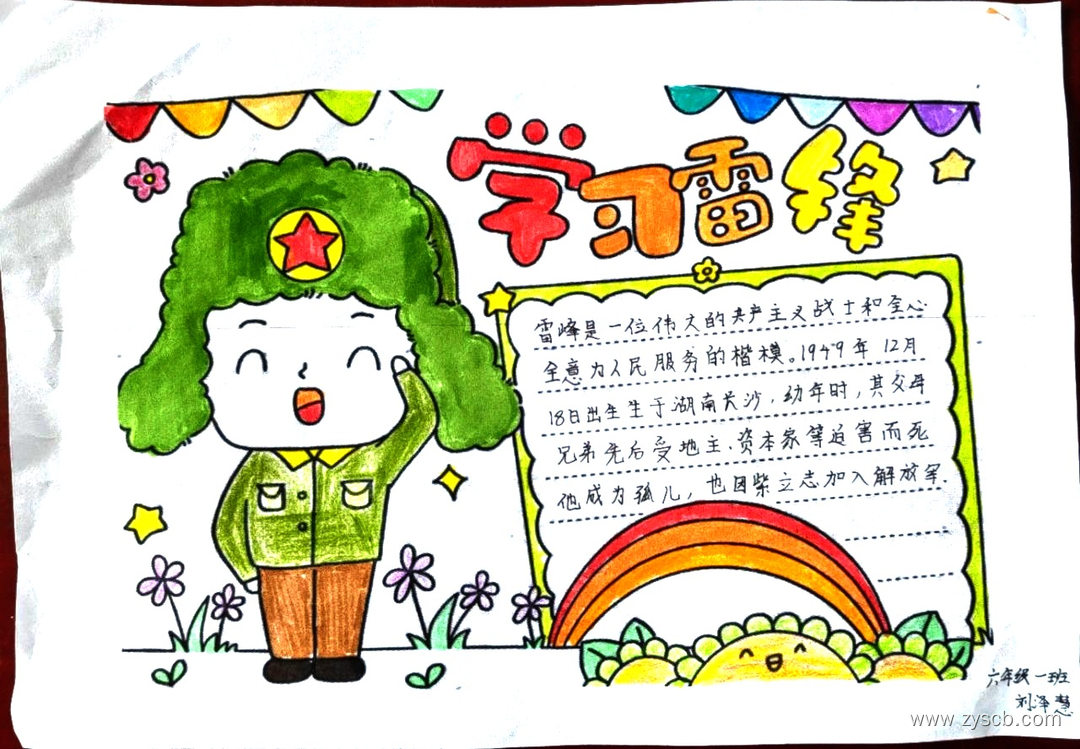 学习雷锋
雷峰是一位伟大的共产主义战士和全心
全意为人民服务的楷模。1949年12月
18日出生生于湖南长沙,幼年时,其父母
兄弟先后受地主、资本家等迫害而死
他成为孤儿,也因柴立志加入解放军.
六年级一班
刘泽慧
www.zyscb.com